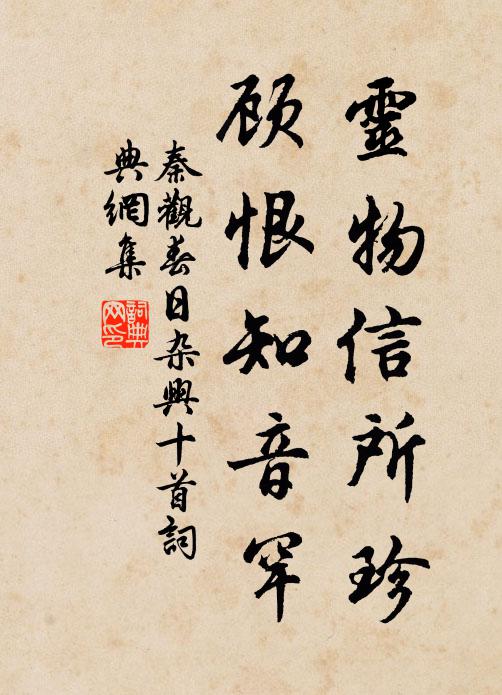 靈物信所珍
顾恨知音罕
秦觀春日杂興十首詞
典網集
詞典
网印